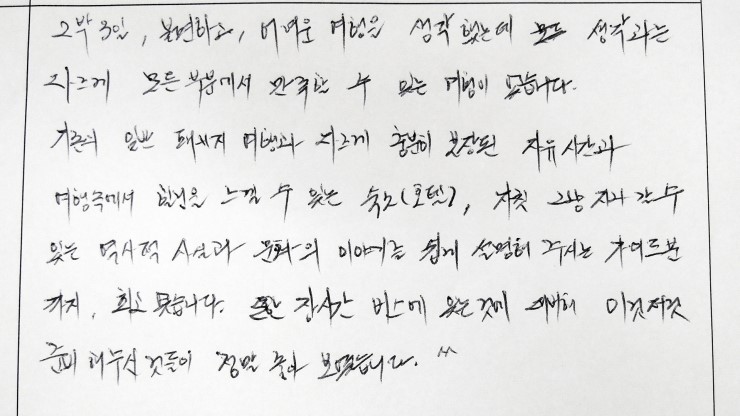 2박 3일, 불편하고, 어려운 여행을 생각 했는데 생각과는
다르게 모든 부분에서 만족할 수 있는 여행이 었습니다.
기존의 일반 패키지 여행과 다르게 충분히 보장된 자유시간과
여행속에서 힐링을 느낄 수 있는 숙소(호텔), 자칫 그냥 지나 갈 수
있는 역사적 사실과 문화의 이야기를 쉽게 설명해 주시는 가이드분
까지, 최고 였습니다. 장시간 버스에 있는 것에 대비해 이것저것
준비 해두신 것들이 정말 좋아 보였습니다. ^^